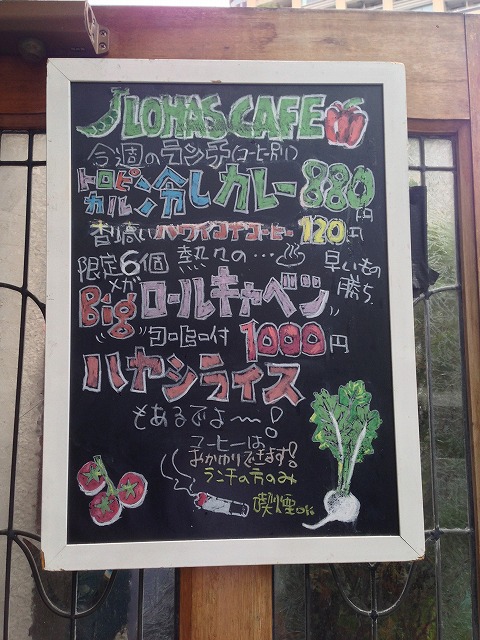 LOHAS CAFE
今週のランチ(コーヒー付)
トロピカルン冷しカレー 880円
香り高いハワイコナコーヒー 120円
限定6個 熱々の… 早いもの勝ち
メガBigロールキャベツ
コーヒー付 1000円
ハヤシライス
もあるでよ〜!
コーヒーは
おかわりできます!
ランチの方のみ
喫煙OK